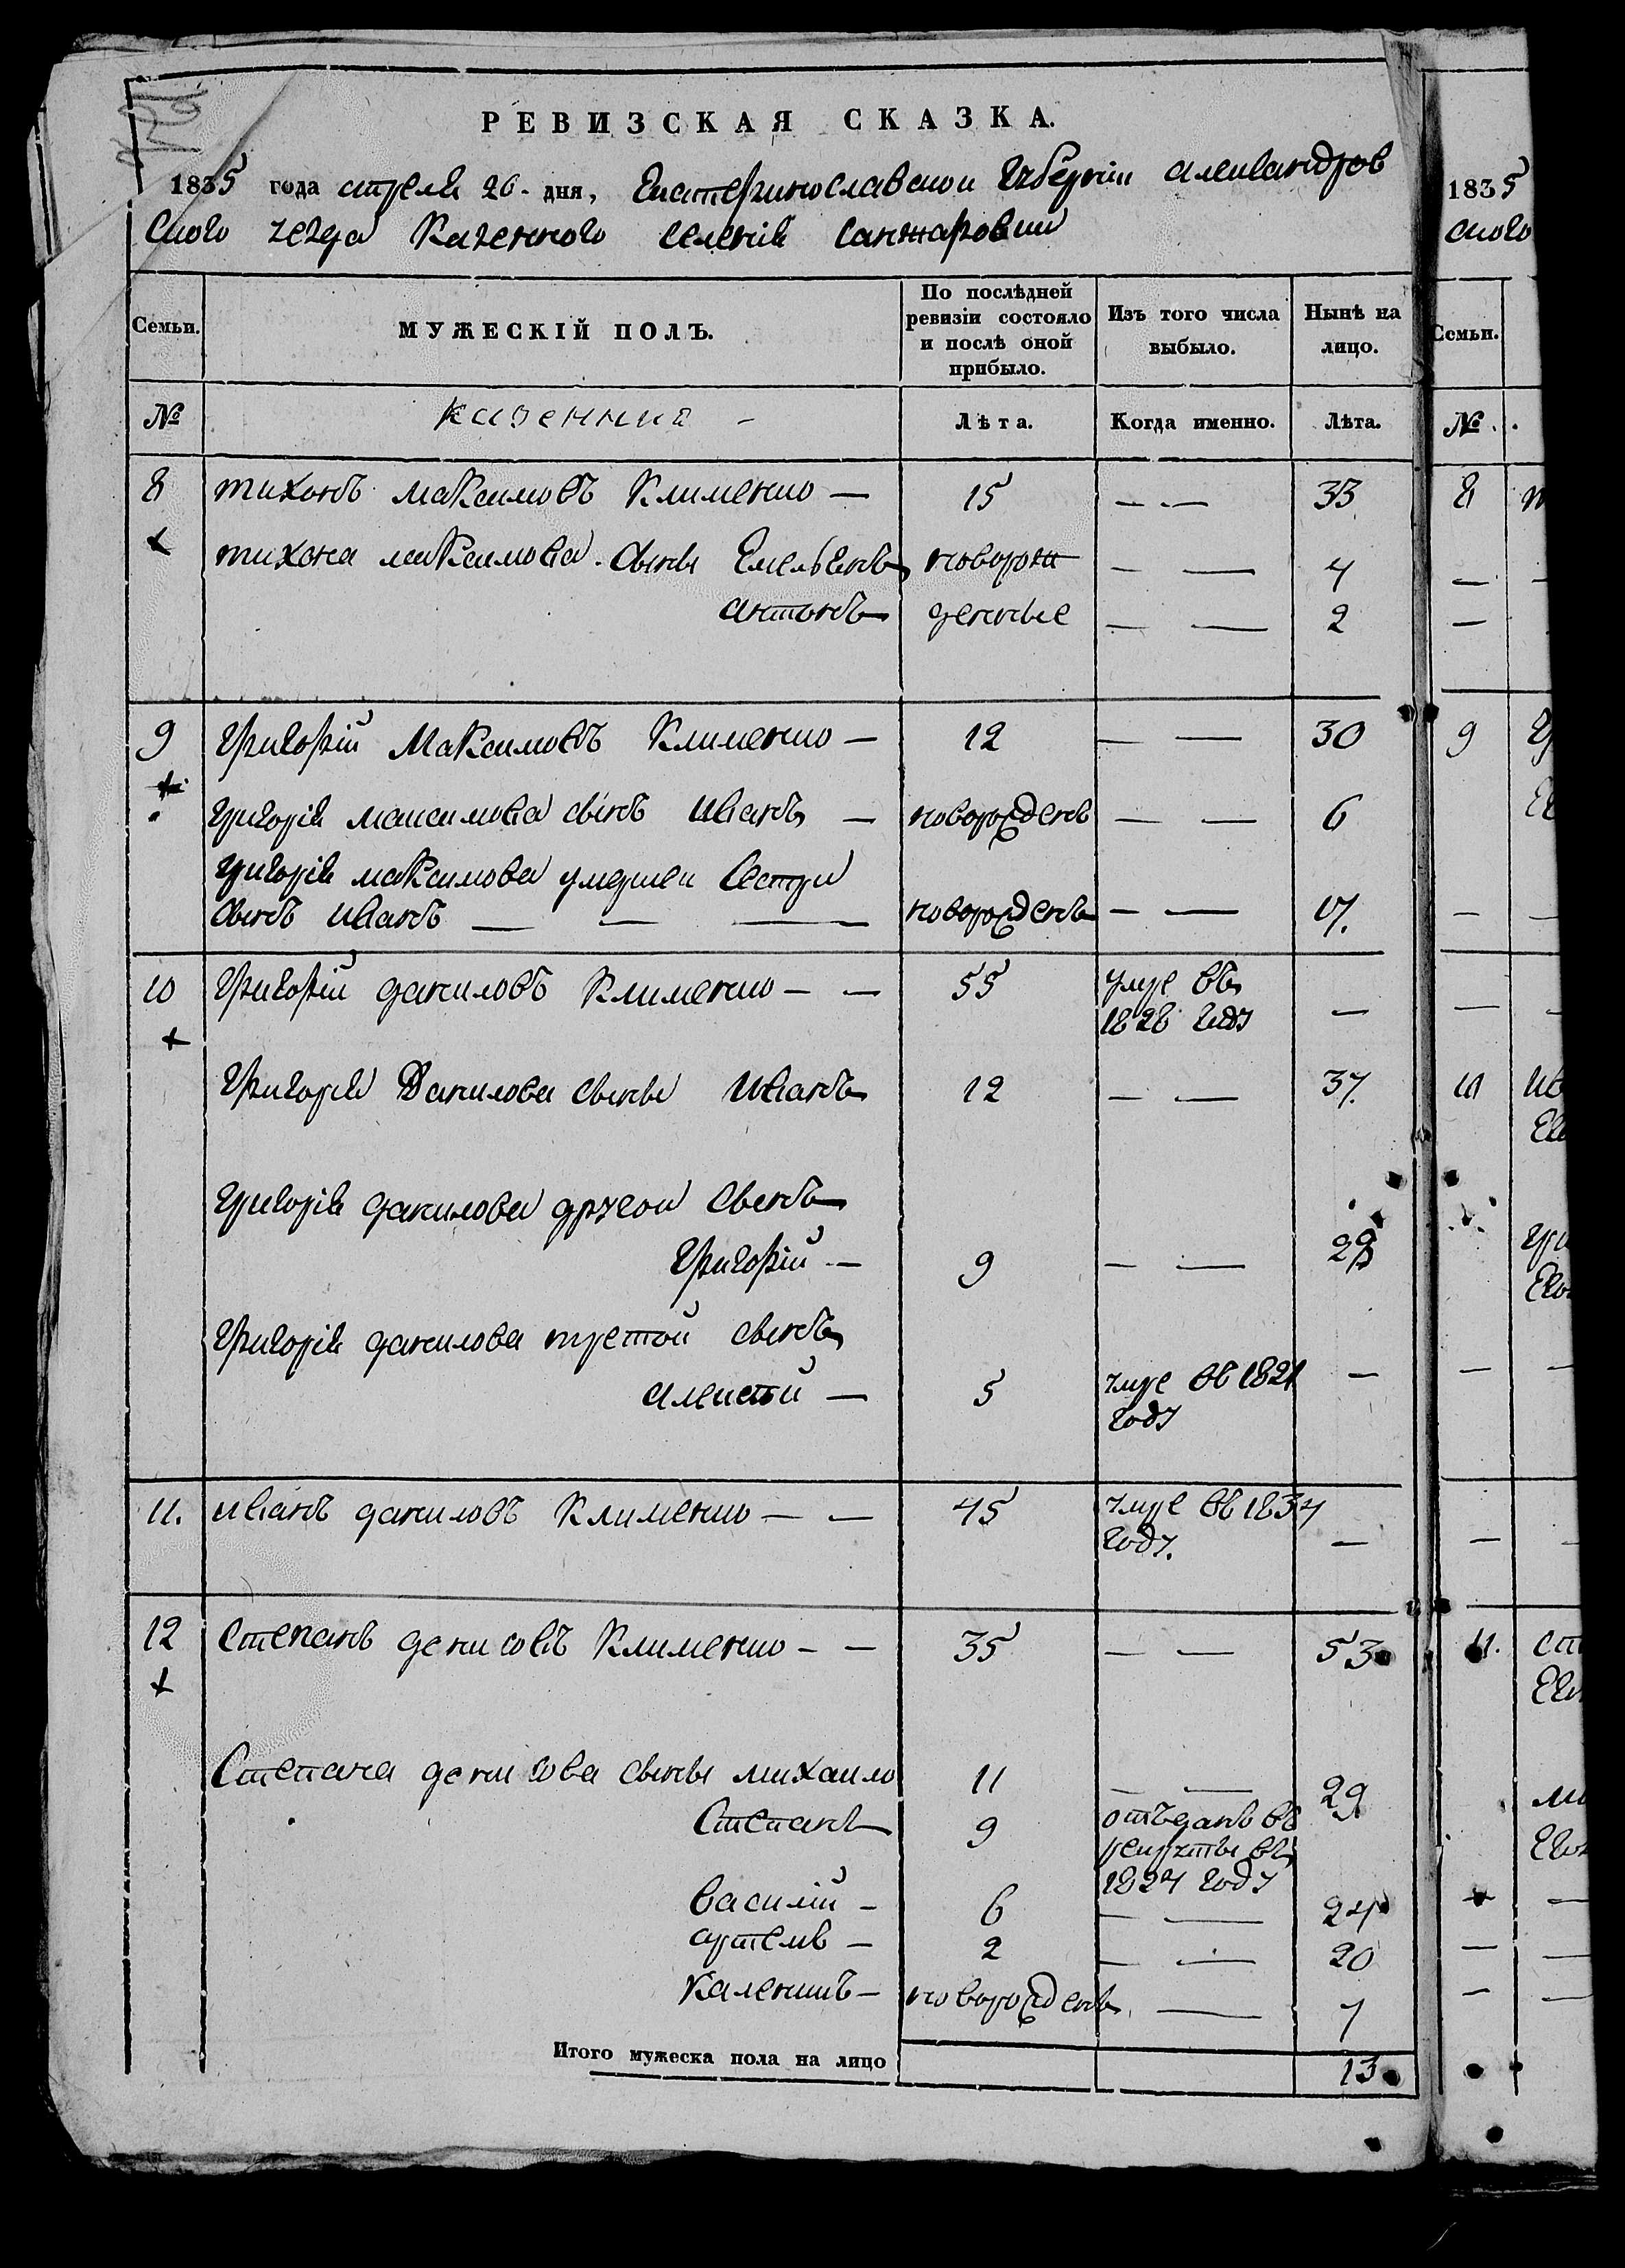 РЕВИЗСКАЯ СКАЗКА.
1835 года апреля 26 - дня, Екатеринославской Губернии александров
ского уезда Казенного селения санжаровки
Семьи.
МУЖЕСКІЙ ПОЛЪ.
По послѣдней ревизіи состояло и послѣ оной прибыло.
Изъ того числа выбыло.
Нынѣ на лицо.
№ казенния -
Лѣта. Когда именно. Лѣта.
8 тихонъ максимовъ Клименко — 15 — — 33
тихона максимова. сыны Емельянъ новорож — — 4
антонъ денные — — 2
9 Григорій Максимовъ Клименко — 12 — — 30
григорія максимова сынъ Иванъ — новорожденъ — — 6
григорія максимова умершеи Сестри
сынъ иванъ — — — новорожденъ — — 17.
10 Григорій даниловъ Клименко — — 55 умре въ —
1828 году
Григорія Данилова сыны Иванъ 12 — — 37.
григорія данилова другои Сынъ
Григорій — 9 — — 28
Григорія данилова третой сынъ
алексей — 5 умре въ 1821 —
году
11. иванъ даниловъ Клименко — — 45 умре въ 1834
году. —
12 Степанъ денисовъ Клименко — — 35 — — 53
Степана денисова сыны михаило 11 — — 29
Степанъ 9 отъданъ въ
рекруты въ
1824 году
василій — 6 — — 24
артемъ — 2 — — 20
каленикъ — новорожденъ — 7
Итого мужеска пола на лицо 13
1835
ского
Семьи.
№
8
9
10
11.